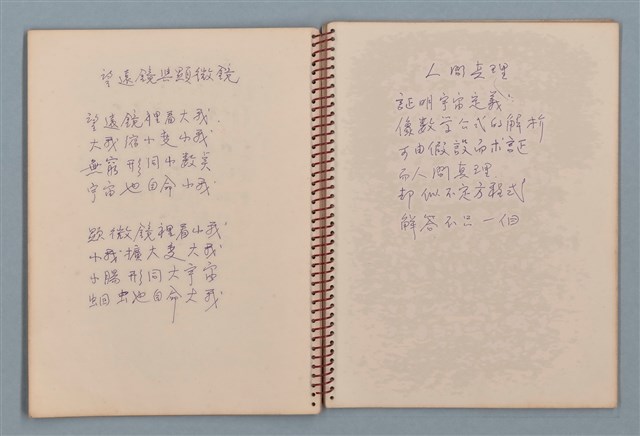 望遠鏡與顯微鏡
望遠鏡裡看大我
大我縮小変小我
無窮形同小數矣
宇宙也自命小我
顯微鏡裡看小我
小我擴大変大我
小腸形同大宇宙
蛔虫也自命大我
人間真理
証明宇宙定義
像数学公式的解析
可由假設而求証
而人間真理
却似不定方程式
解答不只一個